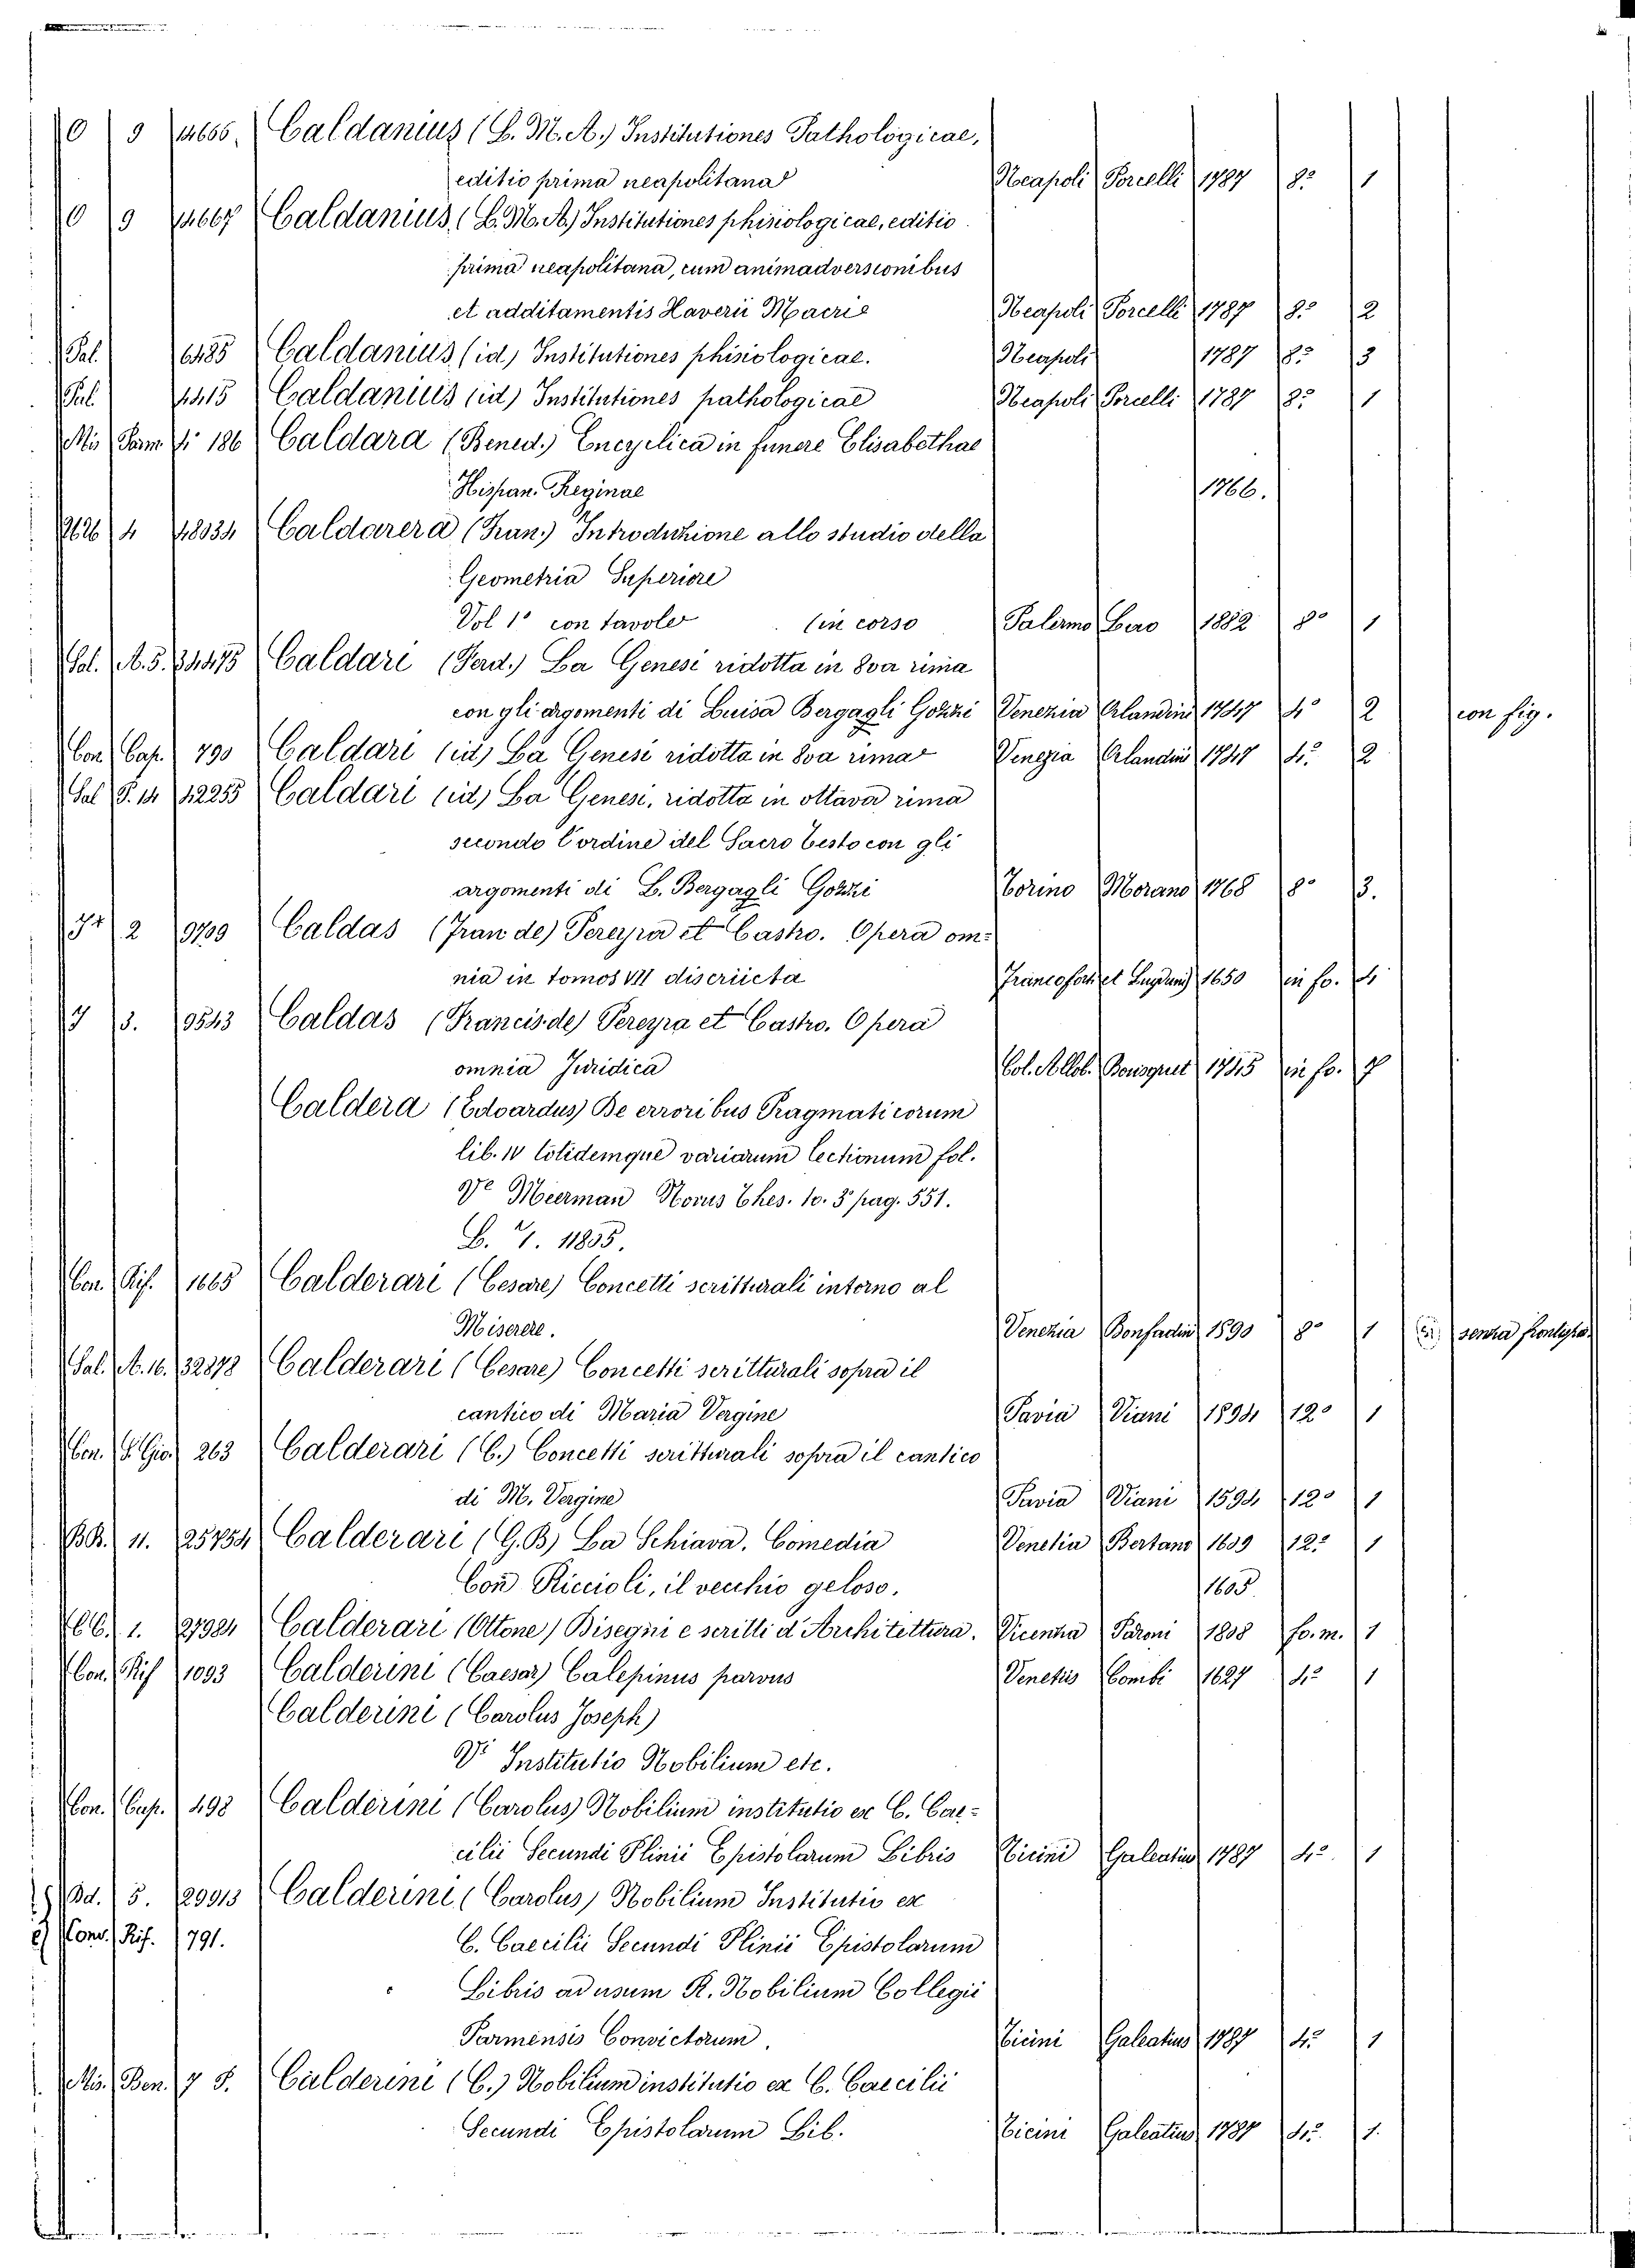 O 9 14666. Caldanius (L. M. A.) Institutiones Pathologicae,
editio prima neapolitana Neapoli Porcelli 1787 8º 1
O 9 14667 Caldanius, (L. M. A.) Institutiones phisiologicae, editio
prima neapolitana, cum animadversionibus
et additamentis Xaverii Macrie Neapoli Porcelli 1787 8º 2
Pal. 6485 Caldanius, (id.) Institutiones phisiologicae. Neapoli 1787 8º 3
Pal. 4415 Caldanius (id) Institutiones pathologicae Neapoli Porcelli 1787 8º 1
Mis Parm. fº 186 Caldara (Bened.) Encyclica in funere Elisabethae
Hispan. Reginae 1766.
4 48034 Caldarera (Fran.) Introduzione allo studio della
Geometria Superiore
Vol 1º con tavole (in corso Palermo Lao 1882 8º 1
Sal. A. 5. 34475 Caldari (Ferd.) La Genesi ridotta in 8va rima
con gli argomenti di Luisa Bergagli Gozzi Venezia Orlandini 1747 4º 2 con fig.
Con Cap. 790 Caldari (id) La Genesi ridotta in 8va rima Venezia Orlandini 1747 4º 2
Sal P. 14 42255 Caldari (id) La Genesi, ridotta in ottava rima
secondo l'ordine del Sacro Testo con gli
argomenti di L. Bergagli Gozzi Torino Morano 1768 8º 3.
2 9709 Caldas (Fran de) Pereyra et Castro. Opera om=
nia in tomos VII discriicta Francofort et Lugduni 1650 in fo. 4
7 3. 9543 Caldas (Francis. de) Pereyra et Castro. Opera
omnia Juridica Col. Allob. Bousquet 1745 in fo. 7
Caldera (Edoardus) De erroribus Pragmaticorum
lib. IV totidemque variarum lectionum fol.
Ve Meerman Novus Thes. to. 3º pag. 551.
L. 7. 11835.
Con. Rif. 1665 Calderari (Cesare) Concetti scritturali intorno al
Miserere. Venezia Bonfadin 1590 8º 1 senza frontesp.
Sal. A. 16. 32878 Calderari (Cesare) Concetti scritturali sopra il
cantico di Maria Vergine Pavia Viani 1594 12º 1
Con. S. Gio. 263 Calderari (C.) Concetti scritturali sopra il cantico
di M. Vergine Pavia Viani 1594 12º 1
BB. 11. 25754 Calderari (G. B) La Schiava. Comedia Venetia Bertano 1609 12º 1
Con Riccioli, il vecchio geloso. 1605
CC. 1. 27984 Calderari (Ottone) Disegni e scritti d'Architettura. Vicenza Paroni 1808 fo. m. 1
Con. Rif 1093 Calderini (Caesar) Calepinus parvus Venetiis Combi 1627 4º 1
Calderini (Carolus Joseph)
Vi Institutio Nobilium etc.
Con. Cap. 498 Calderini (Carolus) Nobilium institutio ex C. Cae=
cilii Secundi Plinii Epistolarum Libris Ticini Galeatius 1787 4º. 1
Dd. 5. 29913 Calderini (Carolus) Nobilium Institutio ex
e) Conv. Rif. 791. C. Caecilii Secundi Plinii Epistolarum
Libris ad usum R. Nobilium Collegii
Parmensis Convictorum. Ticini Galeatius 1787 4º 1
Mis. Ben. 7 8. Calderini (C.) Nobilium institutio ex C. Caecilii
Secundi Epistolarum Lib. Ticini Galeatius 1787 4º. 1.